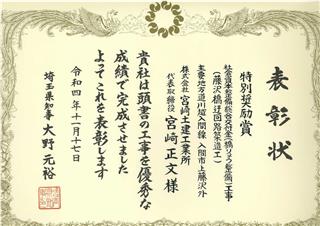 表彰状
特別奨励賞
社会資本整備総合交付金(橋りょう整備)工事
(藤沢橋迂回路築造工)
主要地方道川越入間線 入間市上藤沢外
株式会社 宮崎土建工業所
代表取締役 宮崎正文様
貴社は頭書の工事を優秀な
成績で完成させました
よってこれを表彰します
令和四年十一月十七日
埼玉県知事 大野元裕